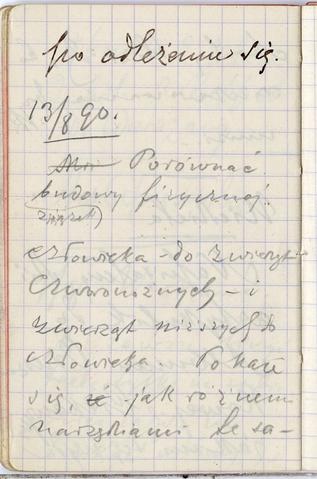 po odleżeniu się.
13/8 90.
Porównać
budowy fizycznej
(związek)
człowieka - do zwierząt
czworonożnych - i
zwierząt niższych do
człowieka. Pokaże
się, że jak różnemi
narzędziami te sa-